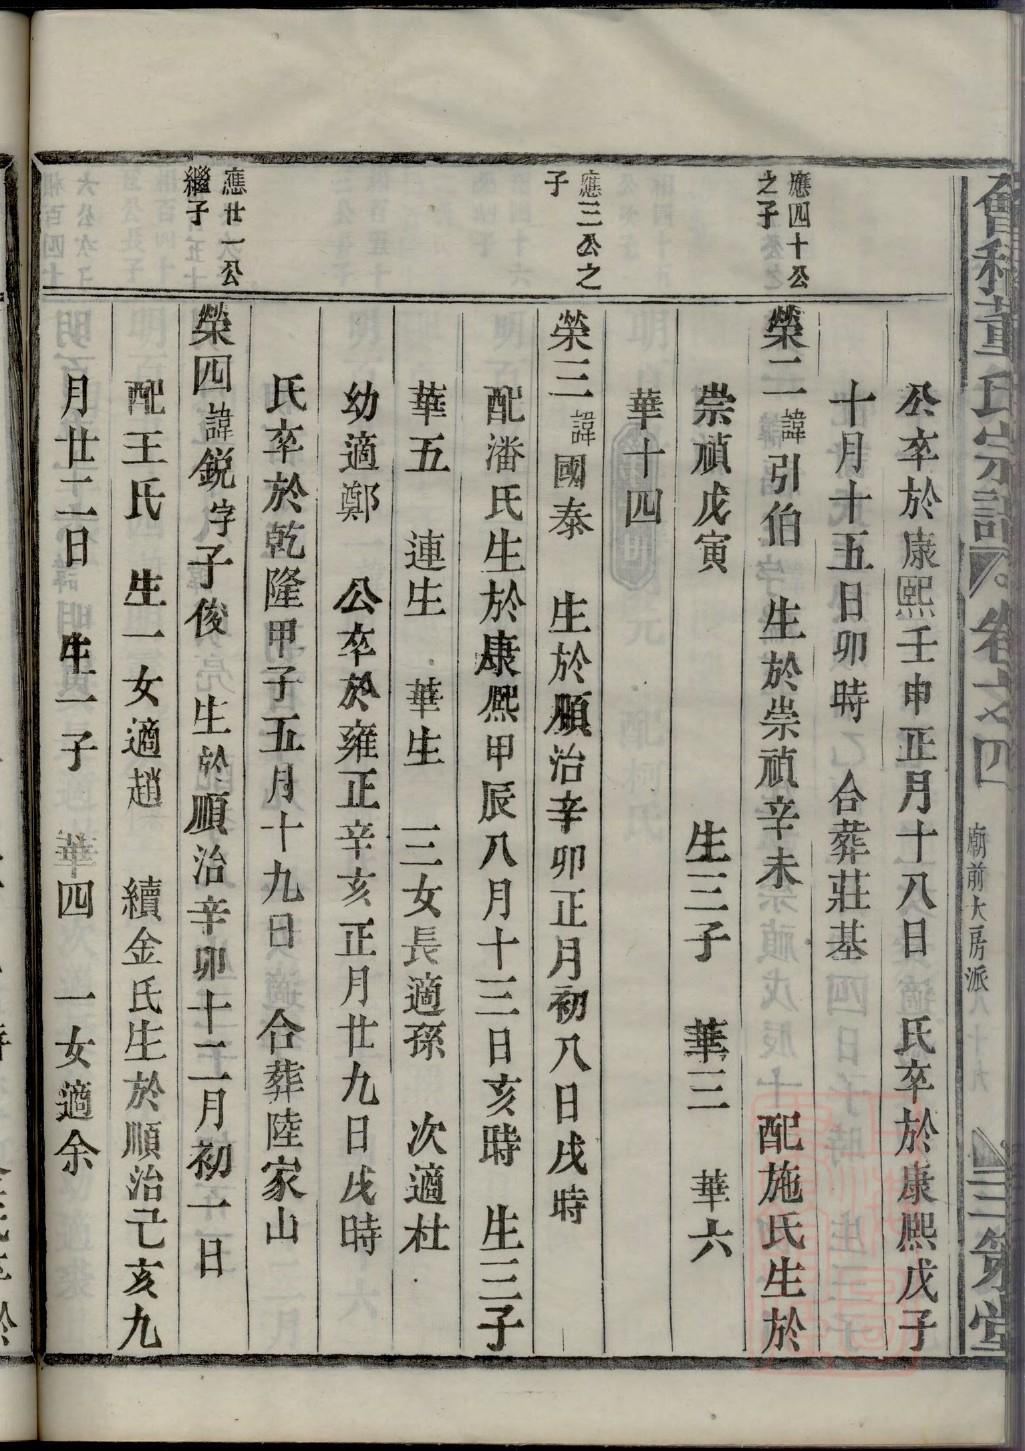 會稽董氏宗譜 卷之四 廟前大房派 三策堂
公卒於康熙壬申正月十八日 氏卒於康熙戊子
十月十五日卯時 合葬莊基
應四十公
之子
榮二諱引伯 生於崇禎辛未 配施氏生於
崇禎戊寅 生三子 華三 華六
華十四
應三公之
子
榮三諱國泰 生於順治辛卯正月初八日戌時
配潘氏生於康熙甲辰八月十三日亥時 生三子
華五 連生 華生 三女長適孫 次適杜
幼適鄭 公卒於雍正辛亥正月廿九日戌時
氏卒於乾隆甲子五月十九日 合葬陸家山
應廿一公
繼子
榮四諱銳字子俊 生於順治辛卯十二月初一日
配王氏 生一女適趙 續金氏生於順治己亥九
月廿二日 生一子 華四 一女適余